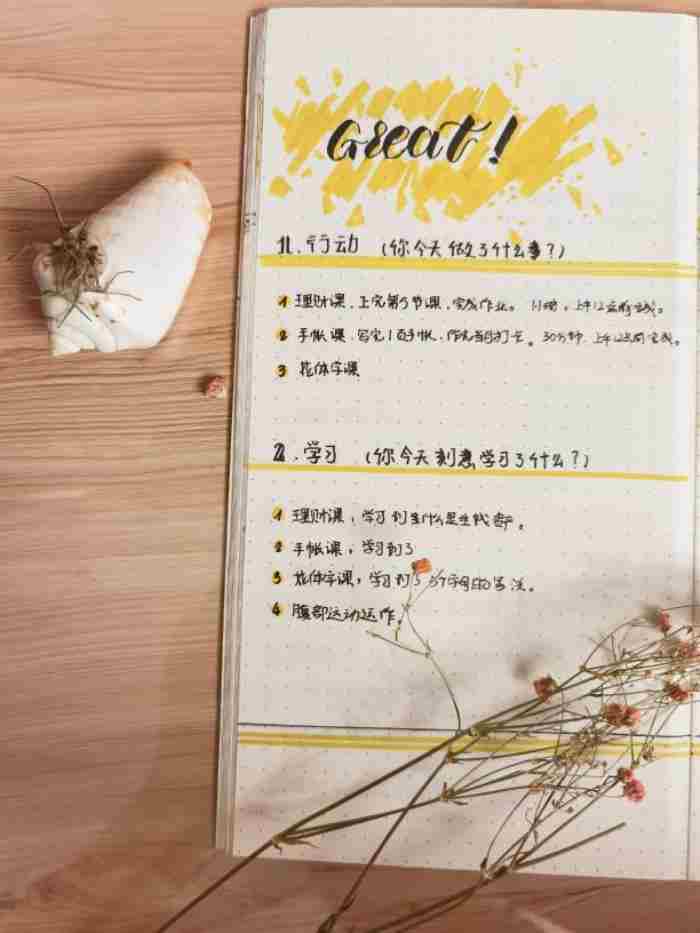 Great!
1. 行动 (你今天做了什么事?)
1 理财课，上完第5节课，完成作业。1小时，上午12点前完成。
2 手帐课，写完1页手帐，打卡。30分钟，上午12点前完成。
3 花体字课
2. 学习 (你今天刻意学习了什么?)
1 理财课，学习到什么是生钱资产。
2 手帐课，学习到了
3 花体字课，学习到了5个字母的写法。
4 腹部运动运作。